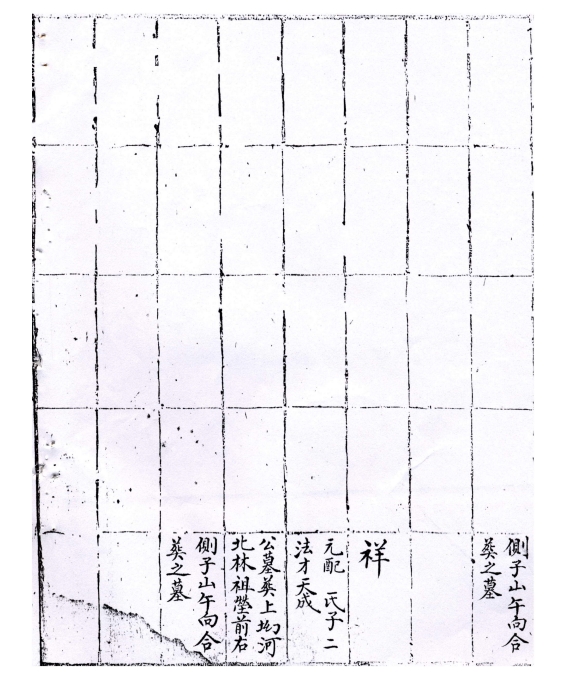 側子山午向合
葬之墓
祥
元配 氏子二
法才天成
公墓葬上坳河
北林祖塋前右
側子山午向合
葬之墓